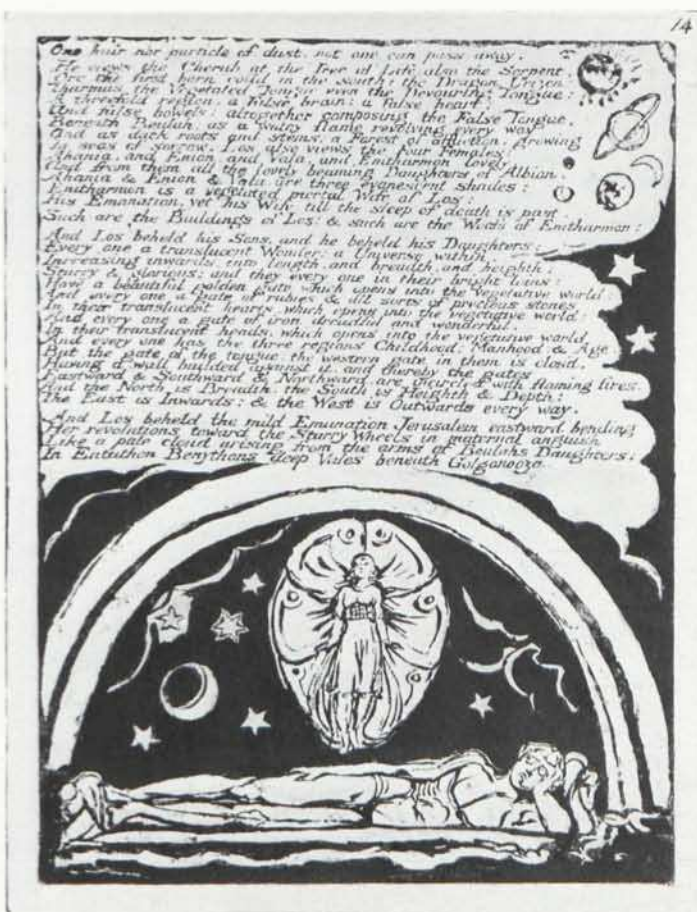 14
One hair nor particle of dust, not one can pass away.
He views the Cherub at the Tree of Life, also the Serpent,
Orc the first born coild in the south: the Dragon Urizen:
Tharmas the Vegetated Tongue even the Devouring Tongue:
A threefold region, a false brain: a false heart:
And false bowels: altogether composing the False Tongue,
Beneath Beulah: as a watry flame revolving every way
And as dark roots and stems: a Forest of affliction, growing
In seas of sorrow. Los also views the Four Females:
Ahania, and Enion, and Vala, and Enitharmon lovely.
And from them all the lovely beaming Daughters of Albion,
Ahania & Enion & Vala, are three evanescent shades:
Enitharmon is a vegetated mortal Wife of Los:
His Emanation, yet his Wife till the sleep of death is past.
Such are the Buildings of Los: & such are the Woofs of Enitharmon:
And Los beheld his Sons, and he beheld his Daughters:
Every one a translucent Wonder: a Universe within,
Increasing inwards, into length and breadth, and heighth:
Starry & glorious: and they every one in their bright loins:
Have a beautiful golden gate which opens into the vegetative world:
And every one a gate of rubies & all sorts of precious stones
In their translucent hearts, which opens into the vegetative world:
And every one a gate of iron dreadful and wonderful,
In their translucent heads, which opens into the vegetative world
And every one has the three regions Childhood: Manhood: & Age:
But the gate of the tongue: the western gate in them is clos'd,
Having a wall builded against it: and thereby the gates
Eastward & Southward & Northward, are incircled with flaming fires.
And the North is Breadth, the South is Heighth & Depth:
The East is Inwards: & the West is Outwards every way.
And Los beheld the mild Emanation Jerusalem eastward bending
Her revolutions toward the Starry Wheels in maternal anguish
Like a pale cloud arising from the arms of Beulahs Daughters:
In Entuthon Benythons deep Vales beneath Golgonooza.